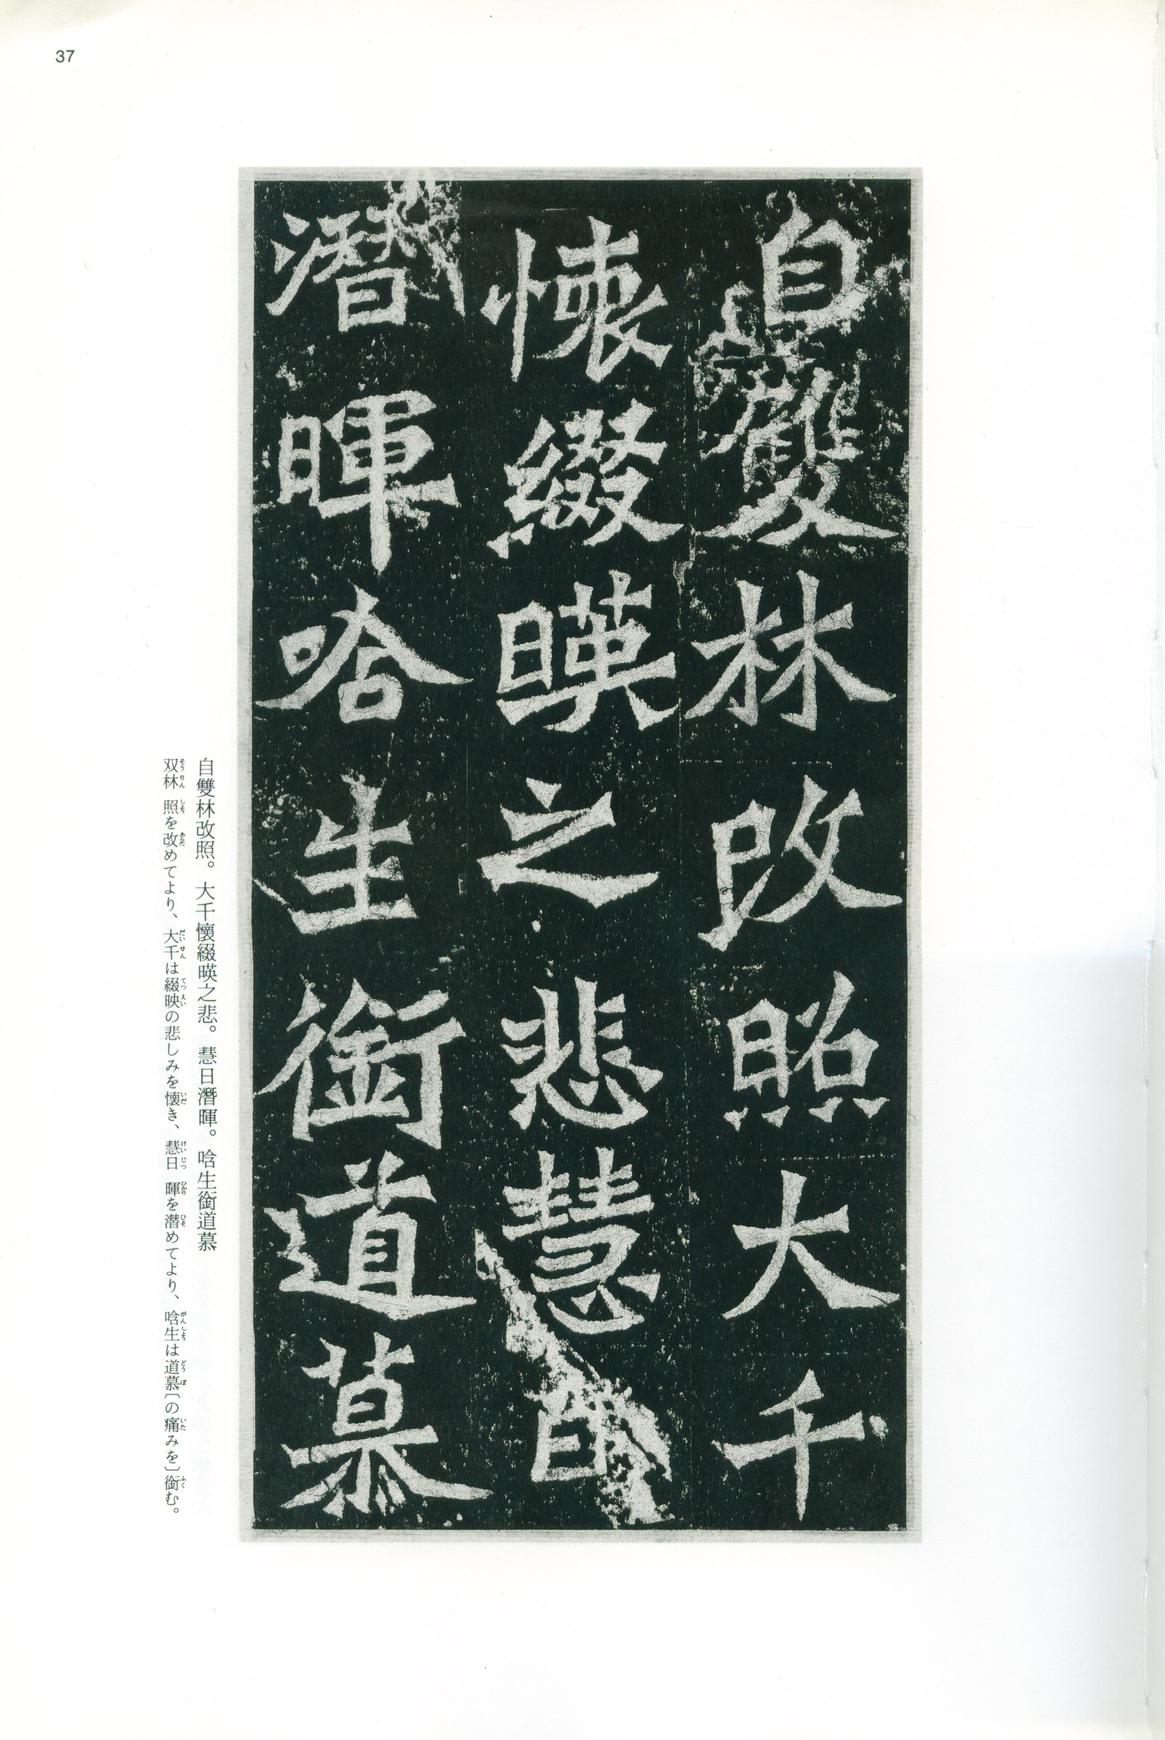 37
自雙林改照大千
懷綴暎之悲慧日
潛暉唅生銜道慕
自雙林改照。大千懷綴暎之悲。慧日潛暉。唅生銜道慕
双林 照を改めてより、大千は綴映の悲しみを懐き、慧日 暉を潜めてより、唅生は道慕〔の痛みを〕銜む。